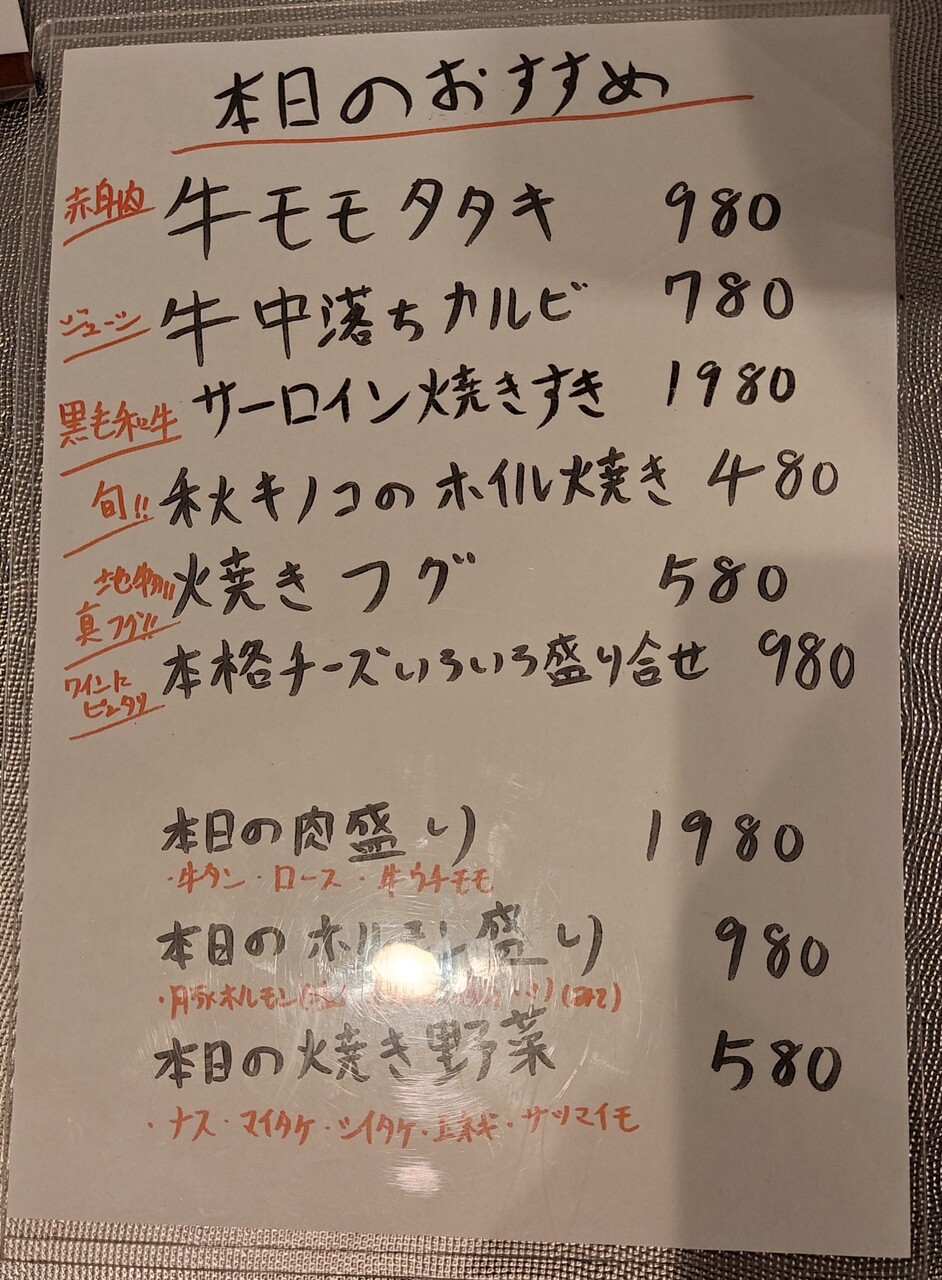 本日のおすすめ
赤身肉 牛モモタタキ 980
ジューシー 牛中落ちカルビ 780
黒毛和牛 サーロイン焼きすき 1980
旬!! 秋キノコのホイル焼き 480
地物!! 焼きフグ 580
真フグ!!
ワインに 本格チーズいろいろ盛り合せ 980
ピッタリ
本日の肉盛り 1980
・牛タン・ロース・牛ウチモモ
本日のホルモン盛り 980
・豚ホルモン
本日の焼き野菜 580
・ナス・マイタケ・シイタケ・玉ネギ・サツマイモ